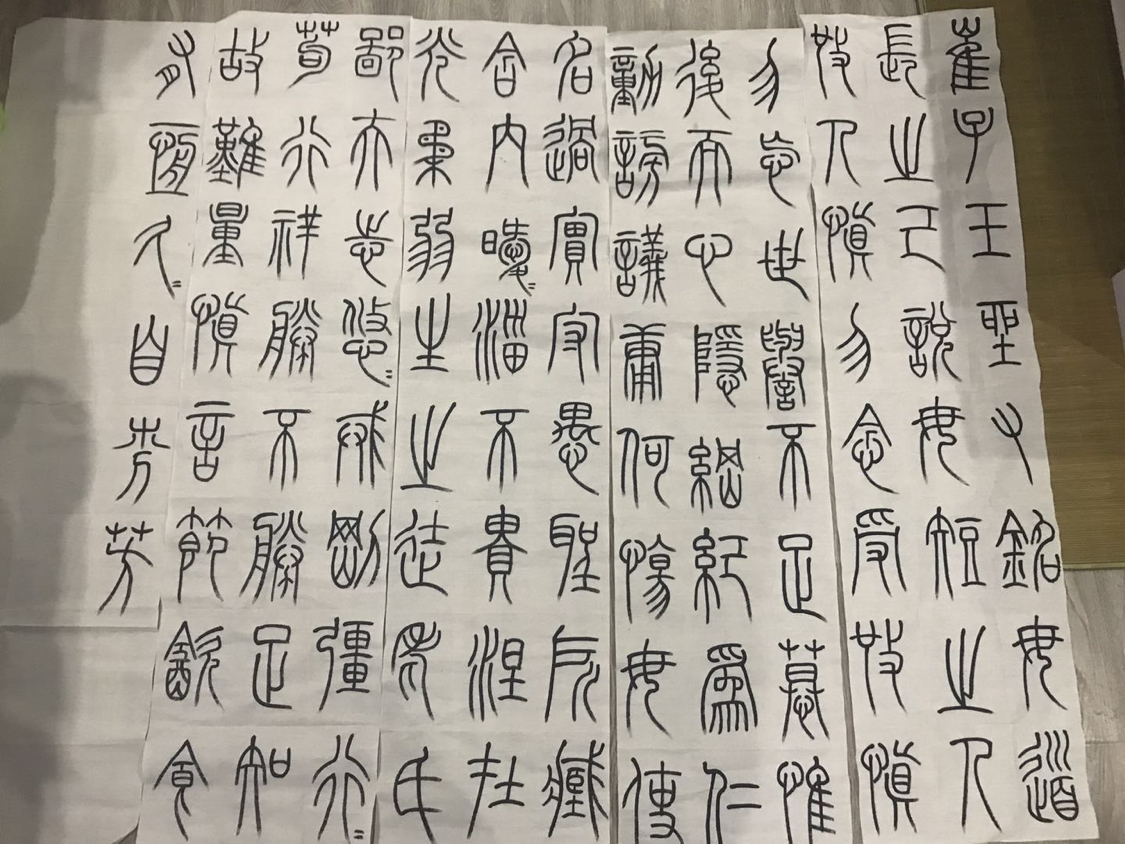 崔子玉坐右銘毋道
長之己說毋短之人
施人慎勿念受施慎
勿忘世譽不足慕惟
後而心隱綱紀為仁
動謗議庸何傷毋使
名過實守愚聖所臧
含內曖=淄不貴涅在
光柔弱生之徒老氏
鄙夫志悠=戒剛彊行=
苟行祥勝不勝足知
故難量慎言節飲食
有恆久=自芬芳